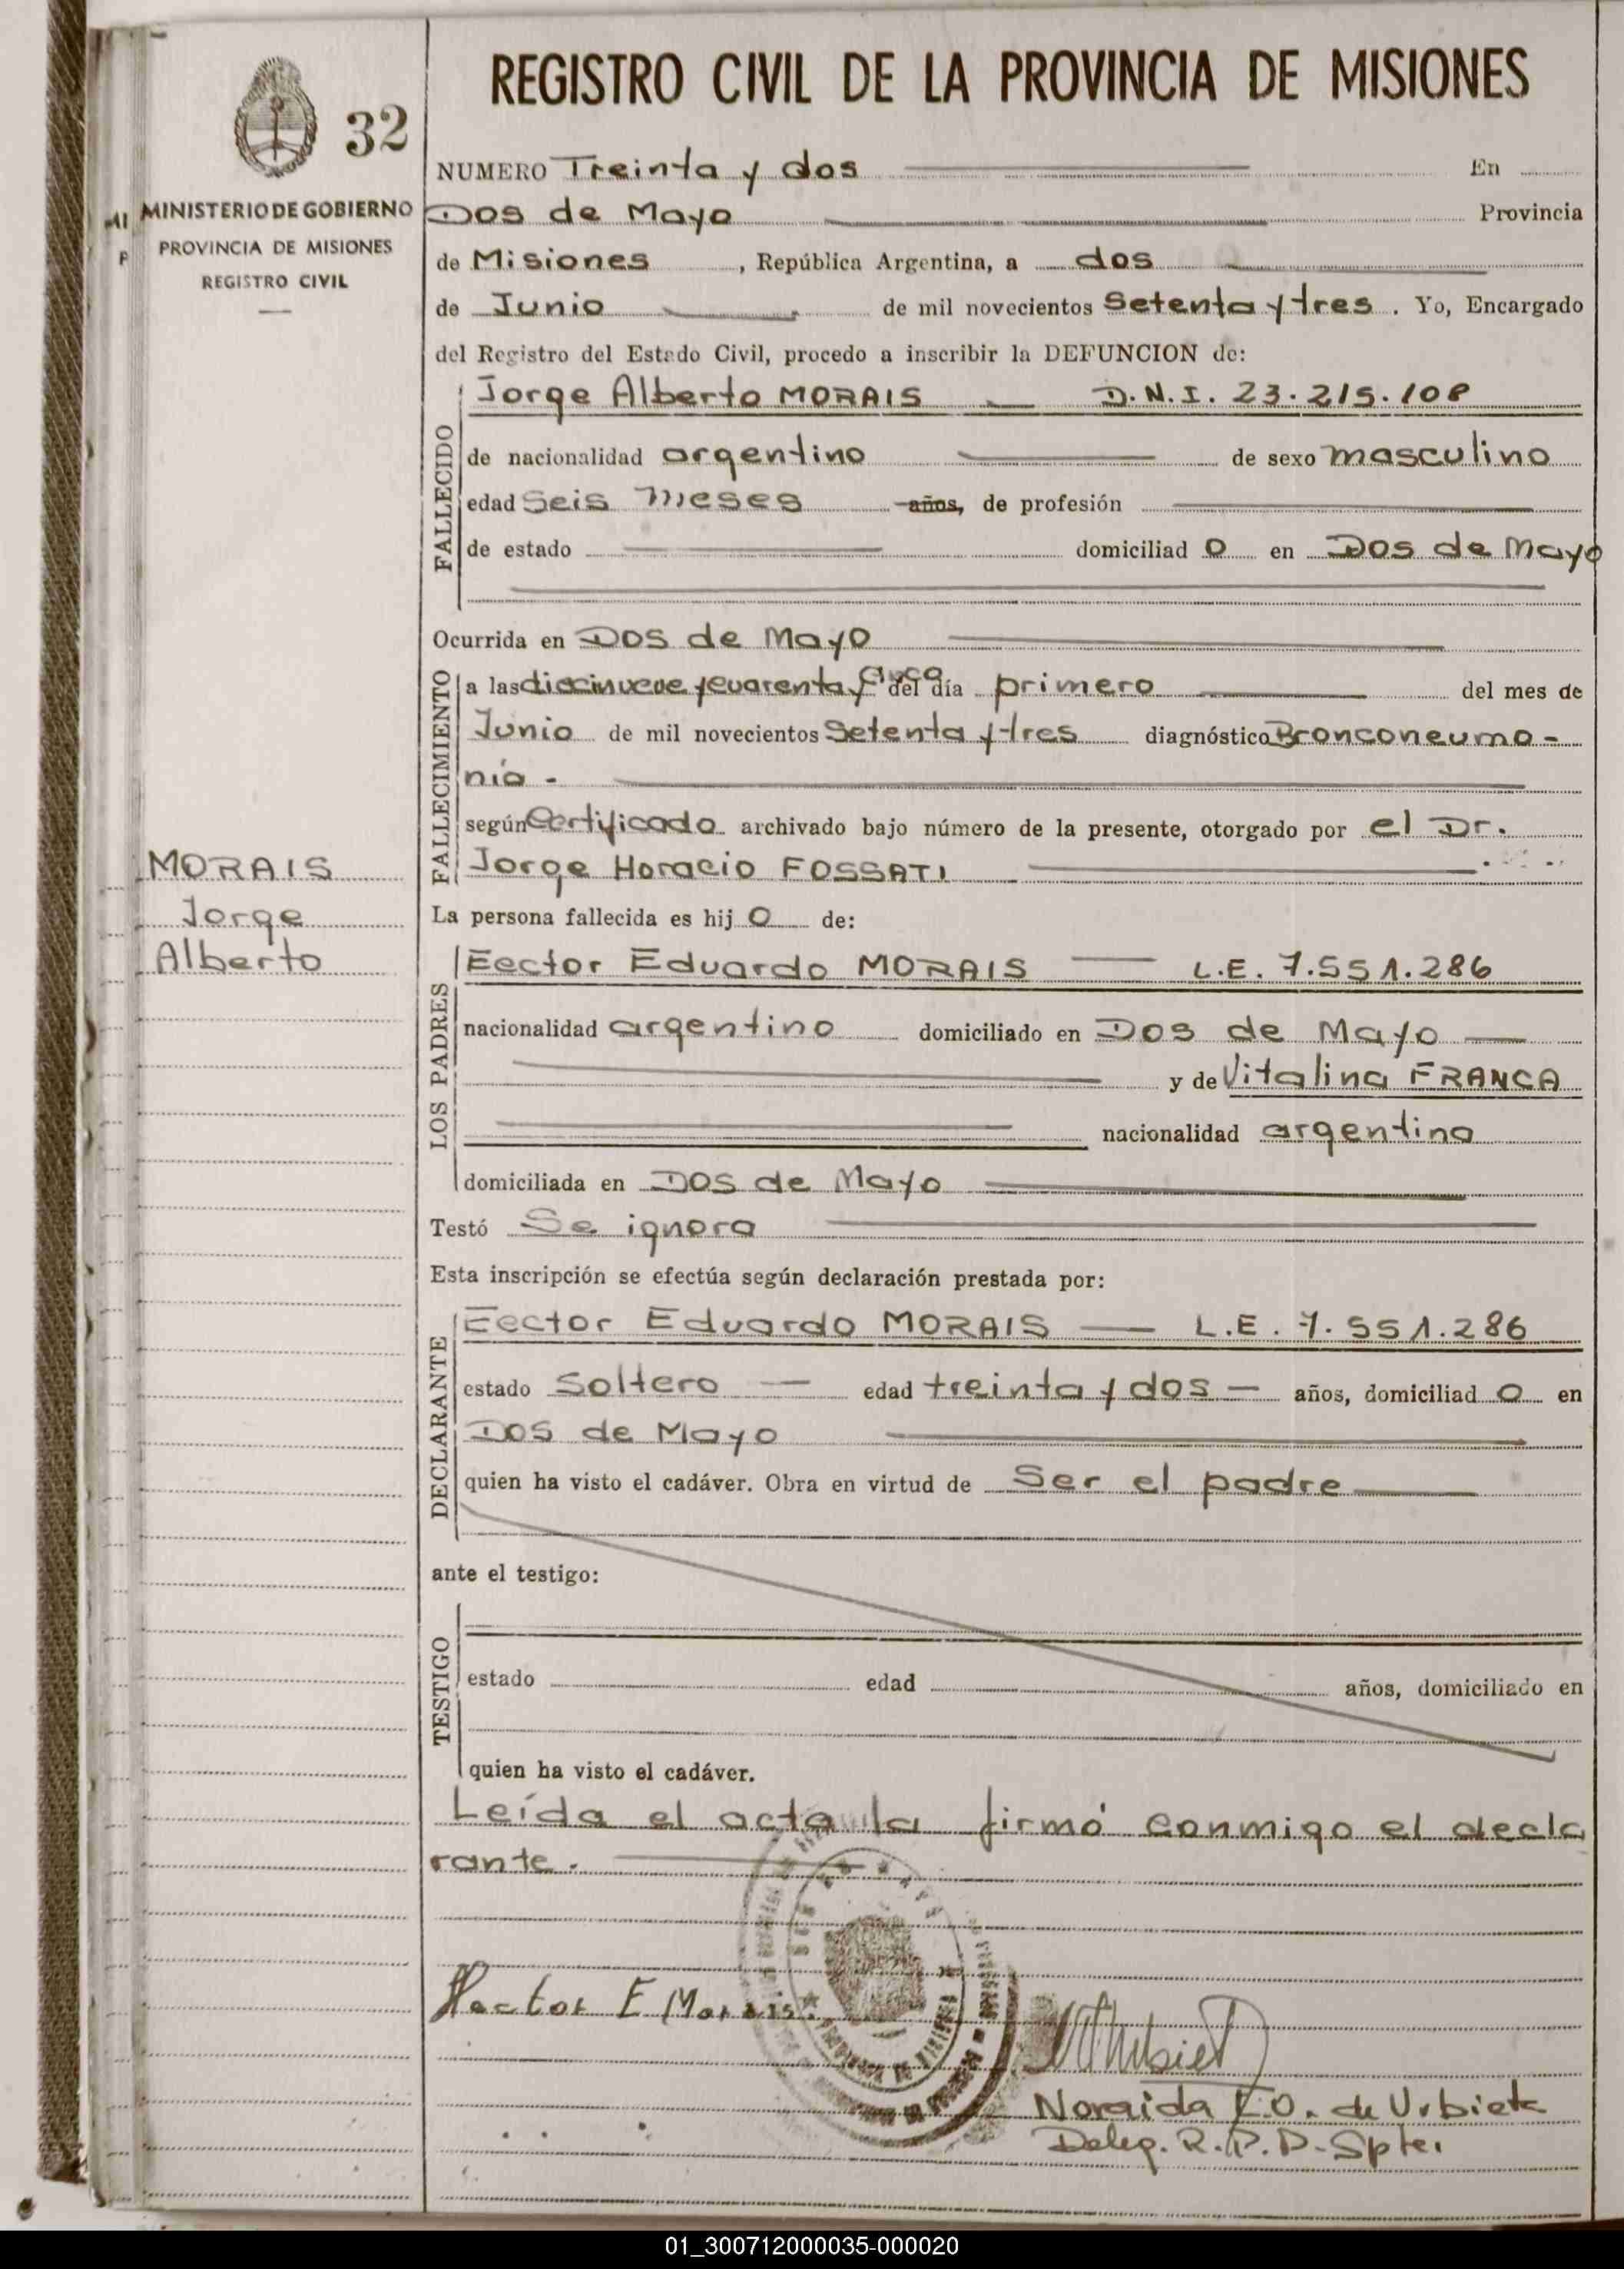 REGISTRO CIVIL DE LA PROVINCIA DE MISIONES
32
MINISTERIO DE GOBIERNO
PROVINCIA DE MISIONES
REGISTRO CIVIL
NUMERO Treinta y dos En
Dos de Mayo Provincia
de Misiones , República Argentina, a dos
de Junio de mil novecientos Setenta y tres . Yo, Encargado
del Registro del Estado Civil, procedo a inscribir la DEFUNCION de:
FALLECIDO
Jorge Alberto MORAIS — D.N.I. 23.215.108
de nacionalidad argentino de sexo masculino
edad Seis meses años, de profesión
de estado domiciliad o en Dos de Mayo
Ocurrida en Dos de Mayo
FALLECIMIENTO
a las diecinueve y cuarenta y cinco del día primero del mes de
Junio de mil novecientos Setenta y tres diagnóstico Bronconeumo-
nía -
según Certificado archivado bajo número de la presente, otorgado por el Dr.
Jorge Horacio FOSSATI
MORAIS
Jorge
Alberto
La persona fallecida es hij o de:
LOS PADRES
Eector Eduardo MORAIS — L.E. 7.551.286
nacionalidad argentino domiciliado en Dos de Mayo —
y de Vitalina FRANCA
nacionalidad argentina
domiciliada en Dos de Mayo
Testó Se ignora
Esta inscripción se efectúa según declaración prestada por:
DECLARANTE
Eector Eduardo MORAIS — L.E. 7.551.286
estado Soltero — edad treinta y dos — años, domiciliad o en
Dos de Mayo
quien ha visto el cadáver. Obra en virtud de Ser el padre
ante el testigo:
TESTIGO
estado edad años, domiciliado en
quien ha visto el cadáver.
Leída el acta la firmó conmigo el decla
rante.
Hector E Morais.
Noraida E.O. de Urbieta
Deleg. R.P.D. Spte.
01_300712000035-000020